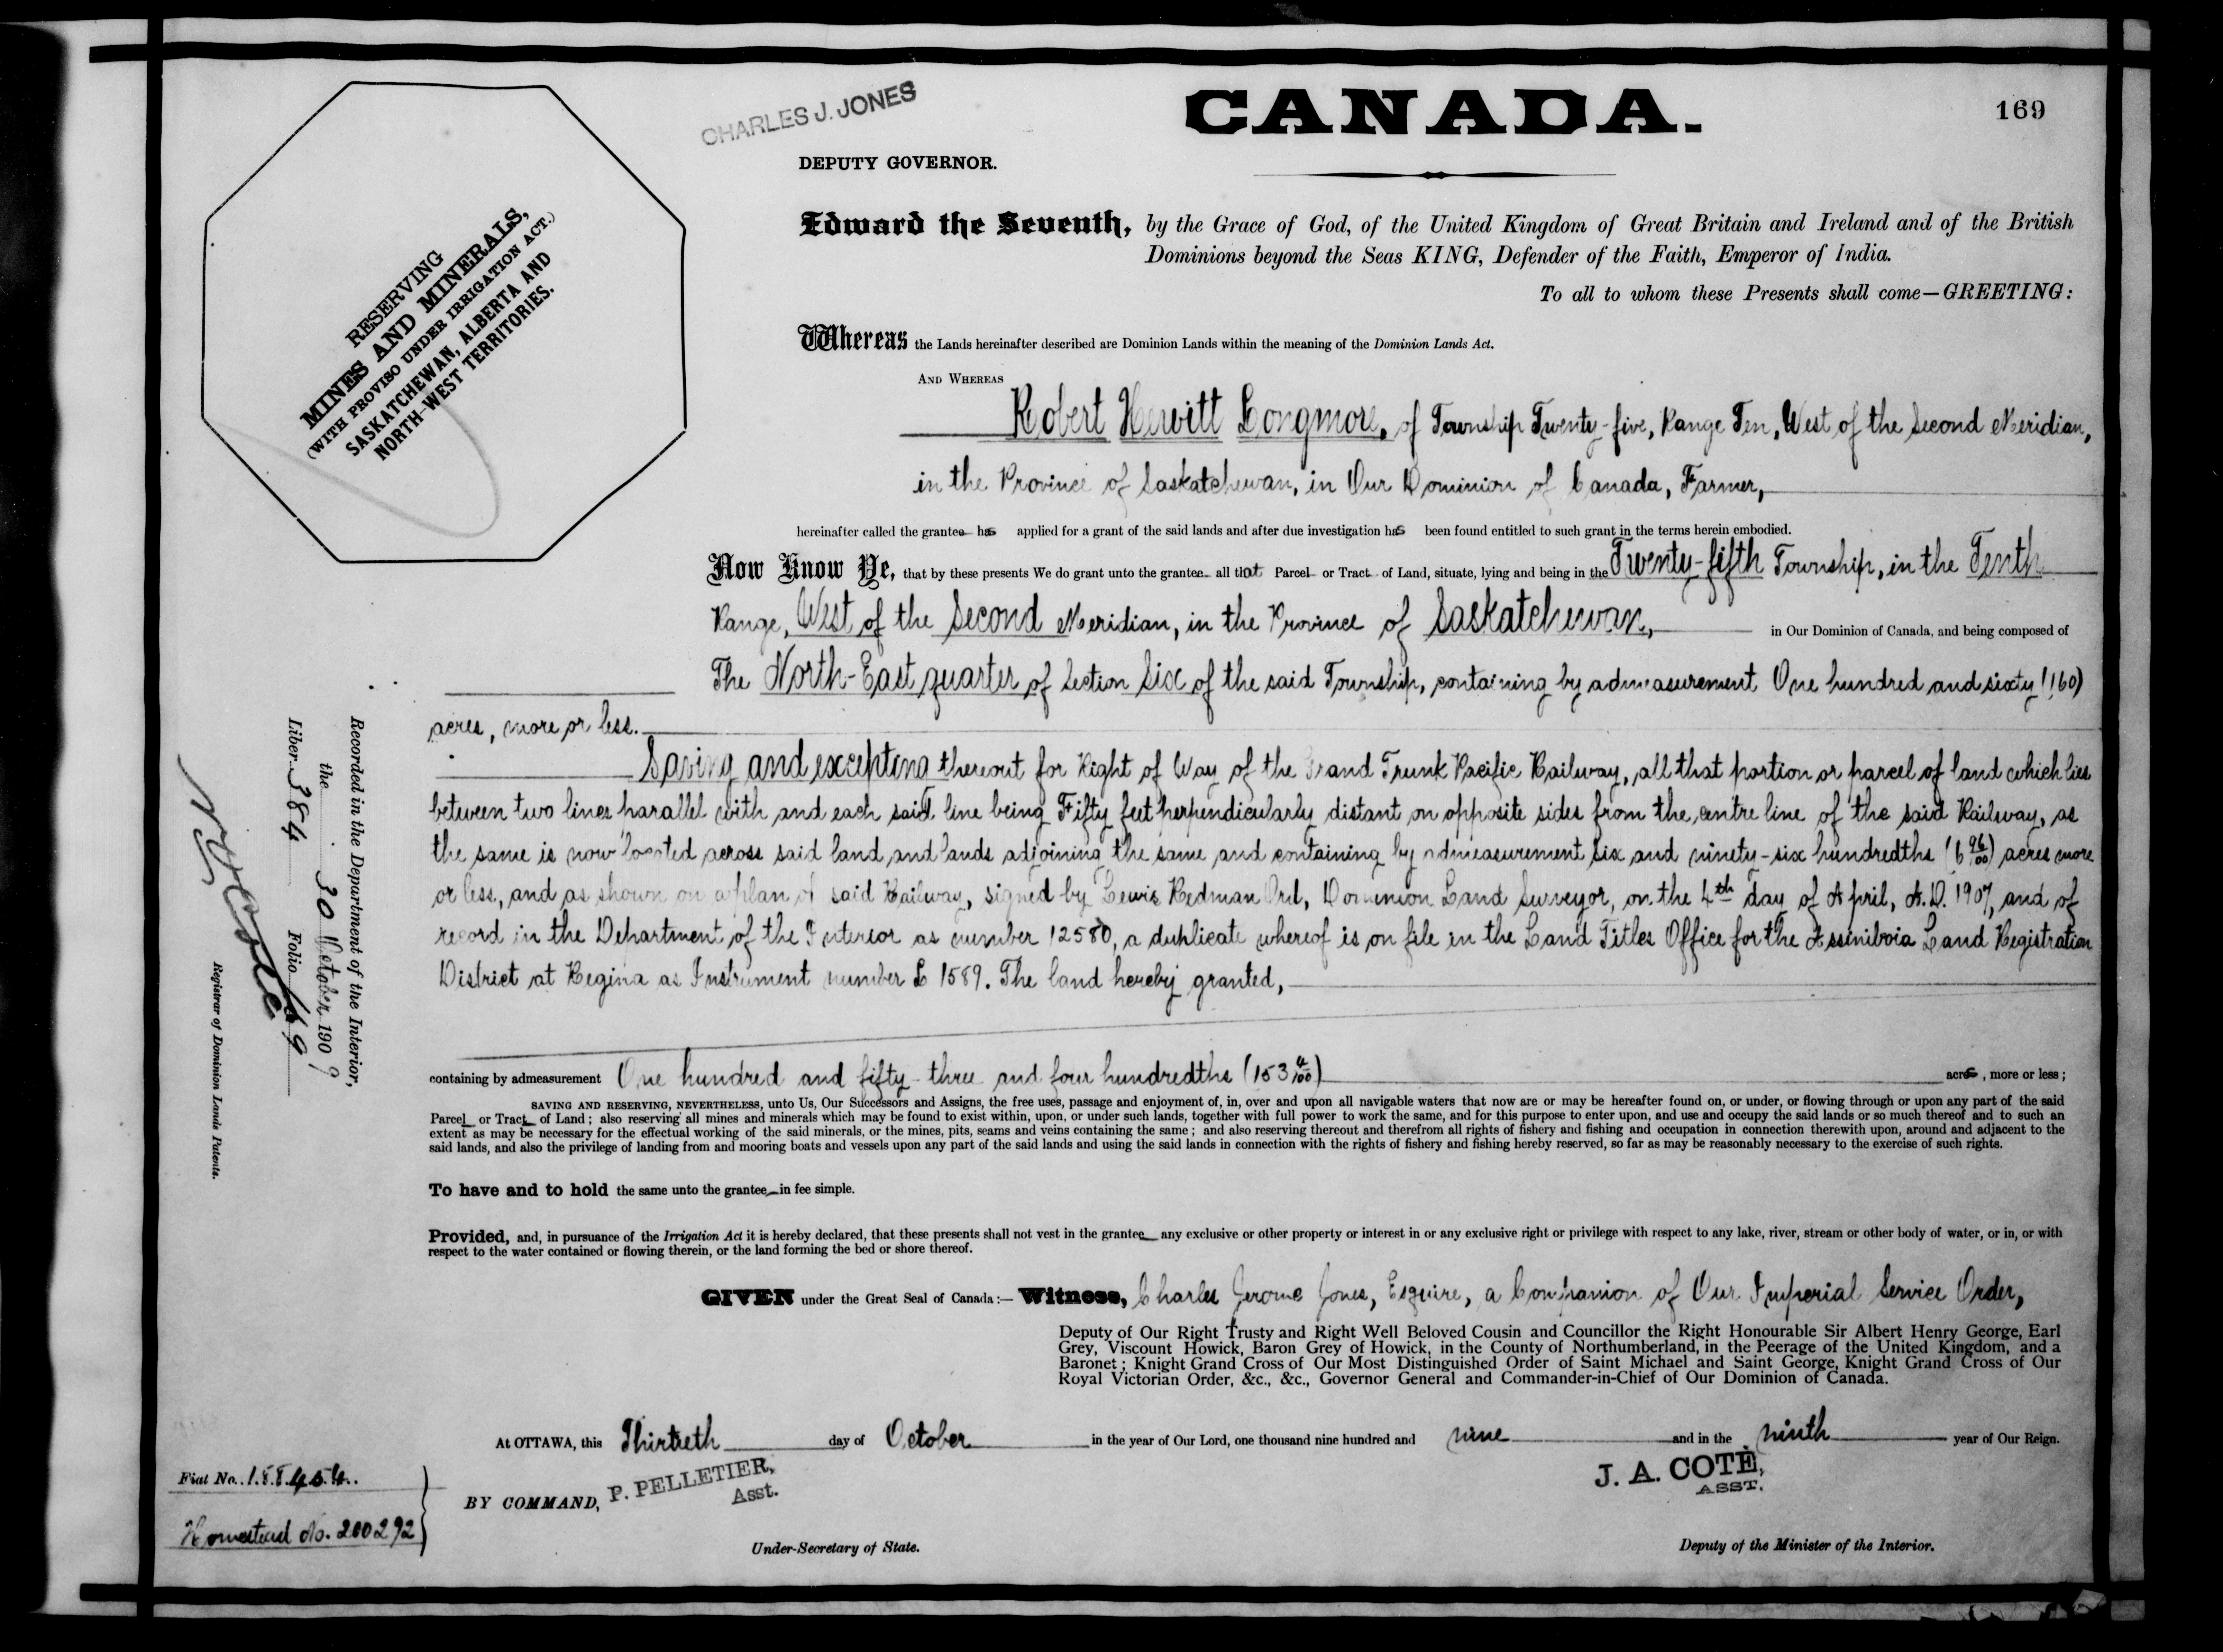 CHARLES J. JONES
CANADA.
169
DEPUTY GOVERNOR.
RESERVING
MINES AND MINERALS,
(WITH PROVISO UNDER IRRIGATION ACT.)
SASKATCHEWAN, ALBERTA AND
NORTH-WEST TERRITORIES.
Edward the Seventh, by the Grace of God, of the United Kingdom of Great Britain and Ireland and of the British
Dominions beyond the Seas KING, Defender of the Faith, Emperor of India.
To all to whom these Presents shall come—GREETING:
Whereas the Lands hereinafter described are Dominion Lands within the meaning of the Dominion Lands Act.
AND WHEREAS
Robert Hewitt Longmore, of Township Twenty-five, Range Ten, West of the Second Meridian,
in the Province of Saskatchewan, in Our Dominion of Canada, Farmer,
hereinafter called the grantee has applied for a grant of the said lands and after due investigation has been found entitled to such grant in the terms herein embodied.
Now Know Ye, that by these presents We do grant unto the grantee all that Parcel or Tract of Land, situate, lying and being in the Twenty-fifth Township, in the Tenth
Range, West of the Second Meridian, in the Province of Saskatchewan, in Our Dominion of Canada, and being composed of
The North-East quarter of Section Six of the said Township, containing by admeasurement One hundred and sixty (160)
acres, more or less.
Saving and excepting thereout for Right of Way of the Grand Trunk Pacific Railway, all that portion or parcel of land which lies
between two lines parallel with and each said line being Fifty feet perpendicularly distant on opposite sides from the centre line of the said Railway, as
the same is now located across said land and lands adjoining the same and containing by admeasurement Six and ninety-six hundredths (6 96/100) acres more
or less, and as shown on a plan of said Railway, signed by Lewis Redman Ord, Dominion Land Surveyor, on the 4th day of April, A.D. 1907, and of
record in the Department of the Interior as number 12580, a duplicate whereof is on file in the Land Titles Office for the Assiniboia Land Registration
District at Regina as Instrument number 1589. The land hereby granted,
containing by admeasurement One hundred and fifty-three and four hundredths (153 4/100) acres, more or less;
SAVING AND RESERVING, NEVERTHELESS, unto Us, Our Successors and Assigns, the free uses, passage and enjoyment of, in, over and upon all navigable waters that now are or may be hereafter found on, or under, or flowing through or upon any part of the said
Parcel or Tract of Land; also reserving all mines and minerals which may be found to exist within, upon, or under such lands, together with full power to work the same, and for this purpose to enter upon, and use and occupy the said lands or so much thereof and to such an
extent as may be necessary for the effectual working of the said minerals, or the mines, pits, seams and veins containing the same; and also reserving thereout and therefrom all rights of fishery and fishing and occupation in connection therewith upon, around and adjacent to the
said lands, and also the privilege of landing from and mooring boats and vessels upon any part of the said lands and using the said lands in connection with the rights of fishery and fishing hereby reserved, so far as may be reasonably necessary to the exercise of such rights.
To have and to hold the same unto the grantee in fee simple.
Provided, and, in pursuance of the Irrigation Act it is hereby declared, that these presents shall not vest in the grantee any exclusive or other property or interest in or any exclusive right or privilege with respect to any lake, river, stream or other body of water, or in, or with
respect to the water contained or flowing therein, or the land forming the bed or shore thereof.
GIVEN under the Great Seal of Canada:— Witness, Charles Jerome Jones, Esquire, a Companion of Our Imperial Service Order,
Deputy of Our Right Trusty and Right Well Beloved Cousin and Councillor the Right Honourable Sir Albert Henry George, Earl
Grey, Viscount Howick, Baron Grey of Howick, in the County of Northumberland, in the Peerage of the United Kingdom, and a
Baronet; Knight Grand Cross of Our Most Distinguished Order of Saint Michael and Saint George, Knight Grand Cross of Our
Royal Victorian Order, &c., &c., Governor General and Commander-in-Chief of Our Dominion of Canada.
At OTTAWA, this Thirtieth day of October in the year of Our Lord, one thousand nine hundred and nine and in the ninth year of Our Reign.
BY COMMAND, P. PELLETIER,
Asst.
Under-Secretary of State.
J. A. COTÉ,
ASST.
Deputy of the Minister of the Interior.
Recorded in the Department of the Interior,
the 30 October 1909
Liber 384 Folio 169
Registrar of Dominion Lands Patents.
Fiat No. 188454
Homestead No. 200292